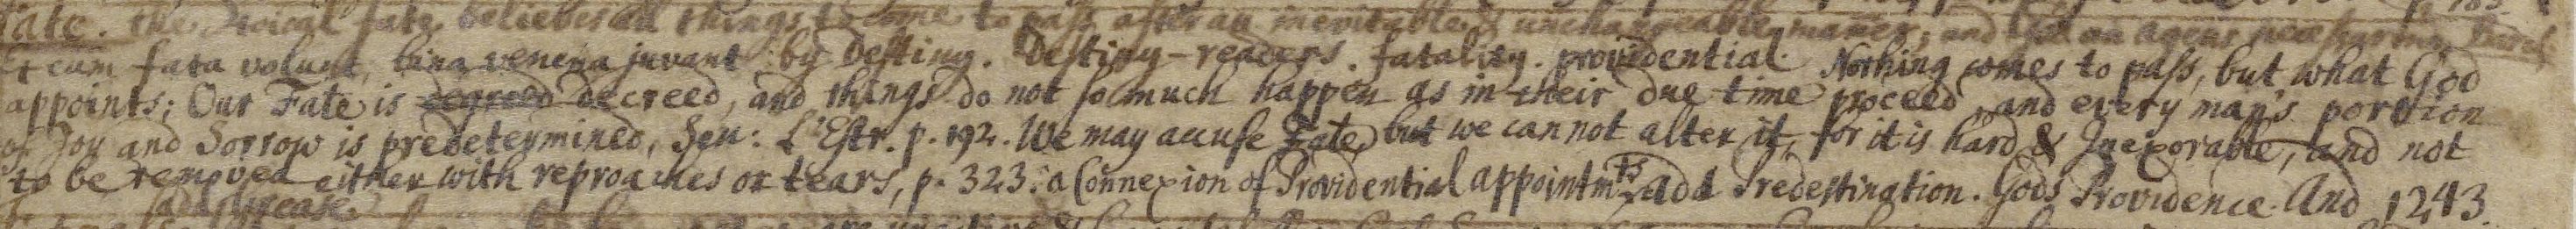 fate. the Stoical fate, believes all things to come to pass after an inevitable & unchangeable manner, and
Et cum fata volunt, bina venena juvant. by Destiny. Destiny-readers. fatality. providential. Nothing comes to pass, but what God
appoints; Our Fate is decreed decreed, and things do not so much happen as in their due time proceed, and every man's portion
of Joy and Sorrow is predetermined, Sen: L'Estr. p. 192. We may accuse Fate, but we cannot alter it, for it is hard & Inexorable, and not
to be removed either with reproaches or tears, p. 323. a Connexion of Providential appointmts, add Predestination. Gods Providence. And 1243.